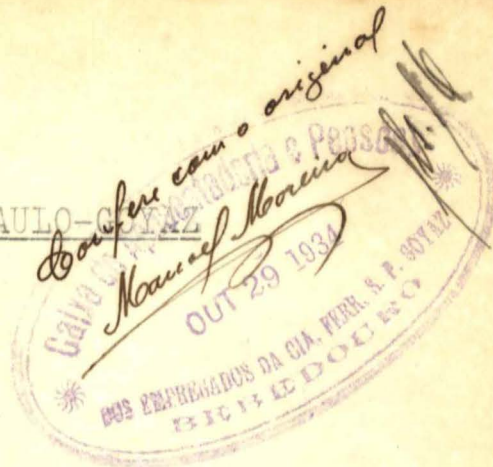 Confere com o original
Manoel Moreira
AULO-GOYAZ
Caixa de Aposentadoria e Pensões
OUT 29 1934
DOS EMPREGADOS DA CIA. FERR. S. P. GOYAZ
BEBEDOURO